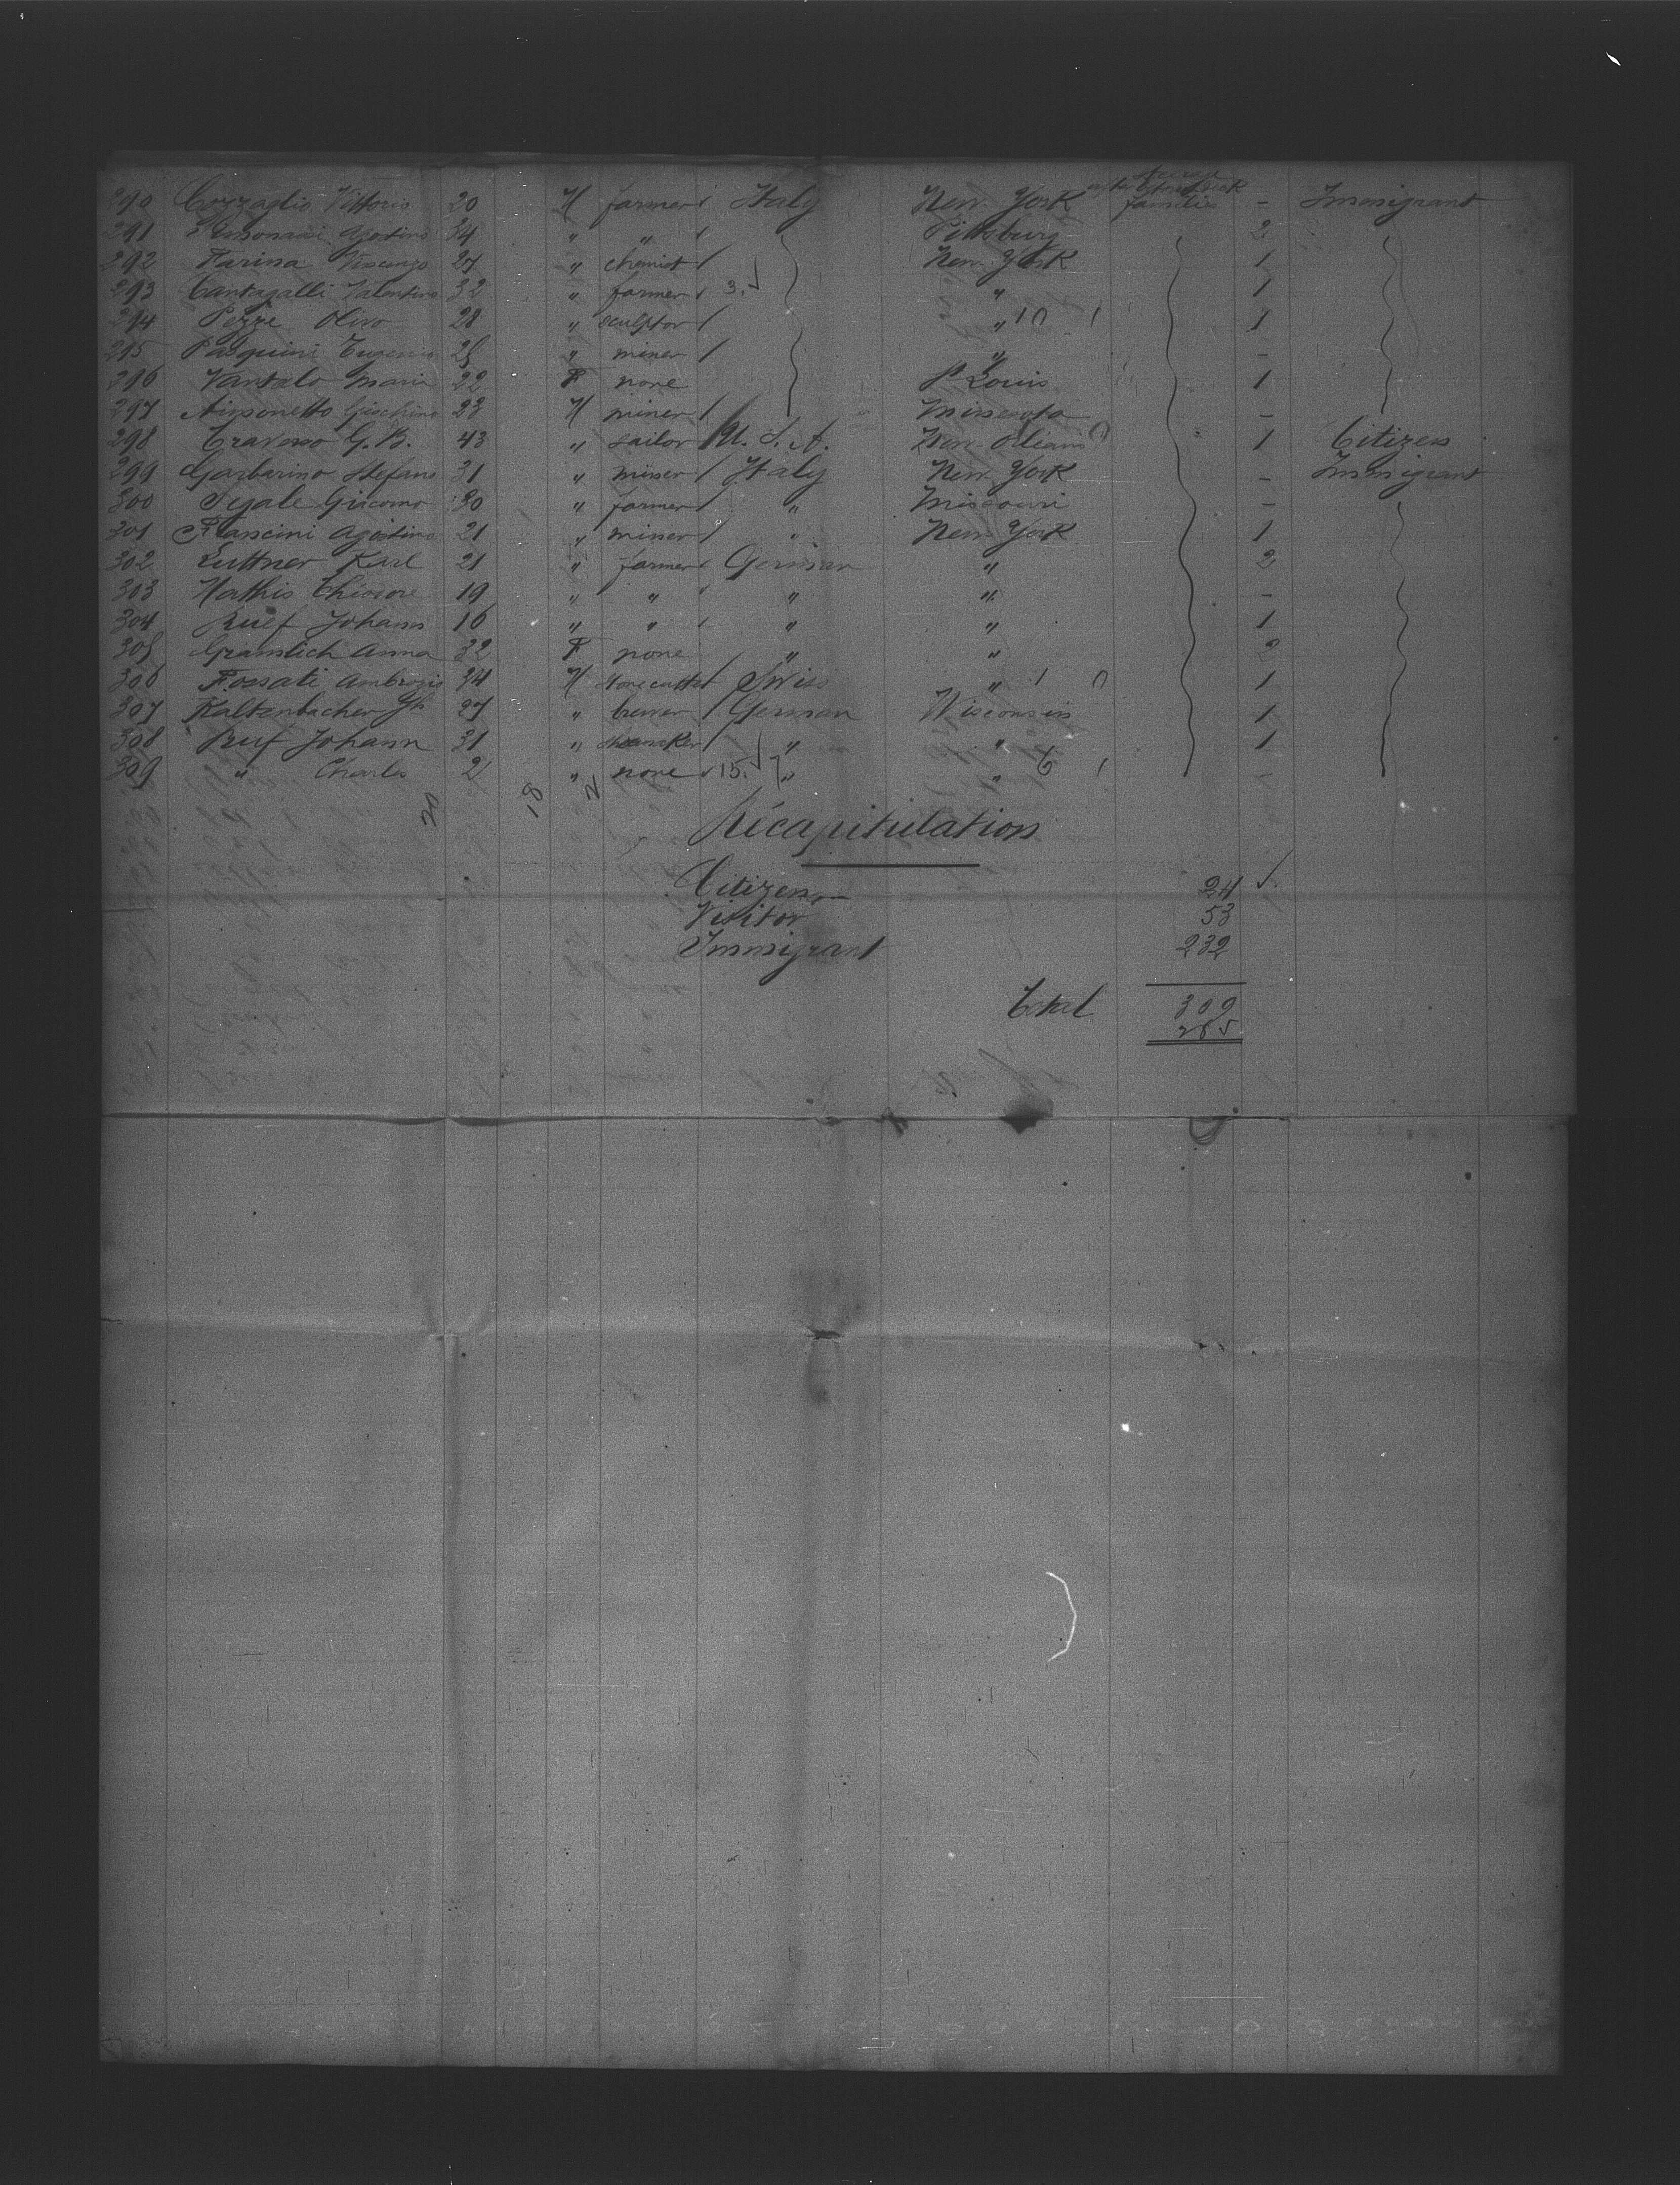 290 Cozzaglio Vittorio 20 M farmer Italy New York families - Immigrant
291 Agostino 34 " " Pittsburg 2
292 Farina Vincenzo 27 " chemist New York 1
293 Cantagalli Valentino 32 " farmer 3. " 1
294 Pezze Olivo 28 " sculptor " 10 1 1
295 Pasquini Eugenio " miner " -
296 Maria 22 F none St Louis 1
297 23 M miner Minnesota -
298 Traverso G. B. 43 " sailor U. S. A. New Orleans 1 Citizen
299 Garbarino Stefano 31 " miner Italy New York - Immigrant
300 Segale Giacomo 30 " farmer " Missouri -
301 Agostino 21 " miner " New York 1
302 Luttner Karl 21 " farmer German " 2
303 Mathis 19 " " " " -
304 Ruef Johann 16 " " " " 1
305 Gramlich Anna 32 F none " " 2
306 Fossati Ambrogio 34 M stonecutter Swiss " 1 0 1
307 Kaltenbacher 27 " brewer German Wisconsin 1
308 Ruf Johann 31 " shoemaker " " 1
309 " Charles 2 " none 15. " " 6 1 -
20 18 2
Récapitulation
Citizen 24
Visitor 53
Immigrant 232
Total 309
285